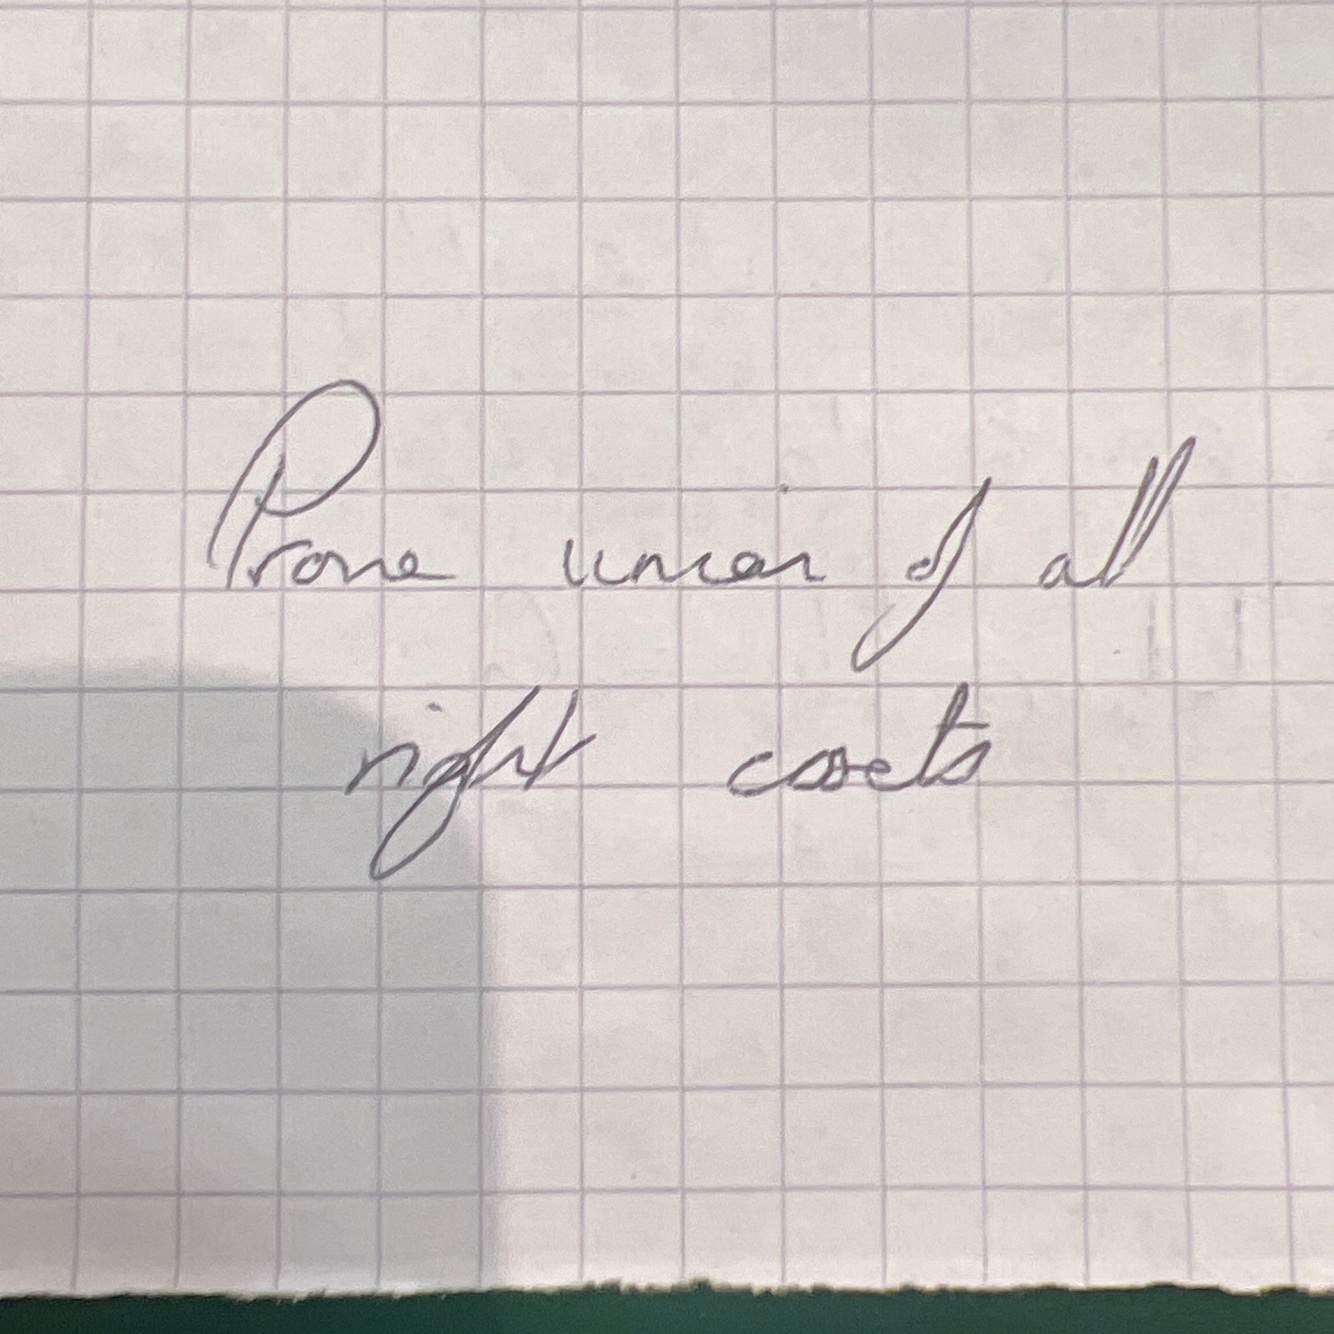 Prove union of all
right cosets